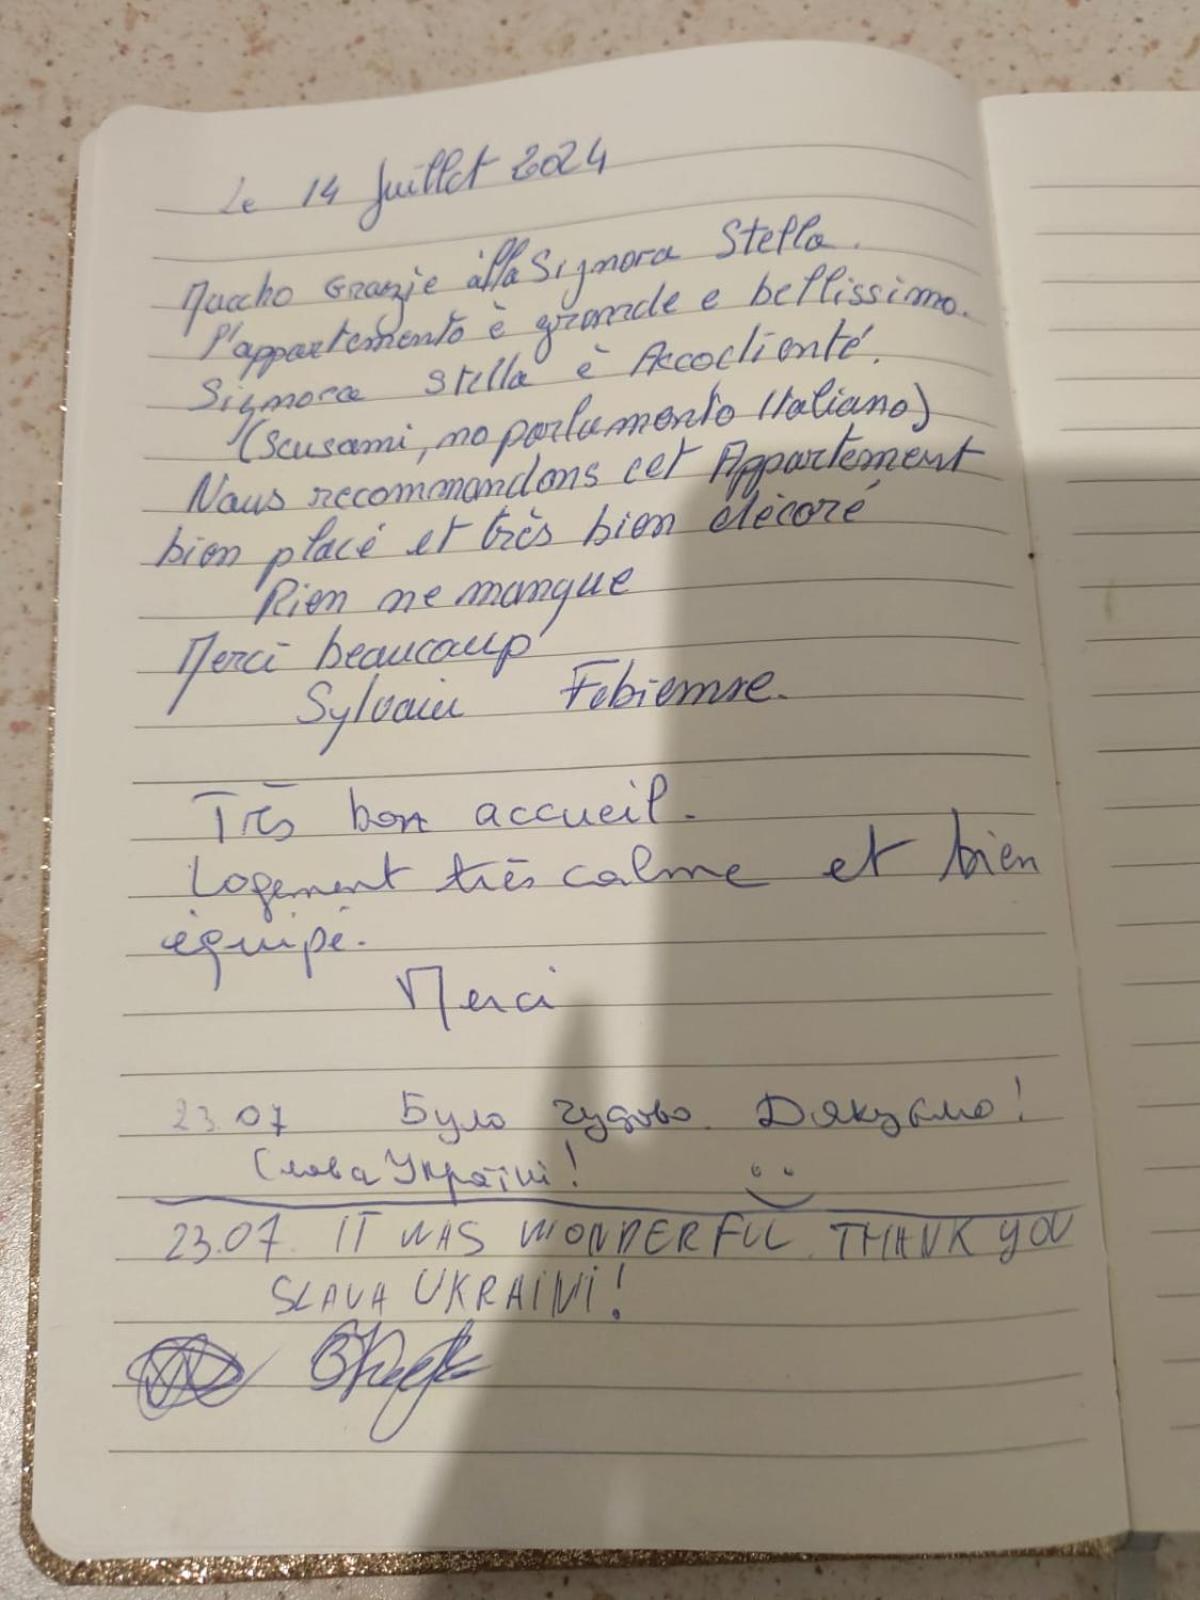 Le 14 Juillet 2024
Maccho Grazie álla Signora Stella.
l'appartemento è grande e bellissimo.
Signora Stella è Accoclienté.
(Scusami, no parlamento Italiano)
Nous recommandons cet Appartement
bien placé et très bien décoré
Rien ne manque
Merci beaucoup
Sylvain Fabienne.
Très bon accueil.
Logement très calme et bien
équipé.
Merci
23.07 Було чудово. Дякуємо!
Слава Україні!
23.07. IT WAS WONDERFUL. THANK YOU
SLAVA UKRAINI!